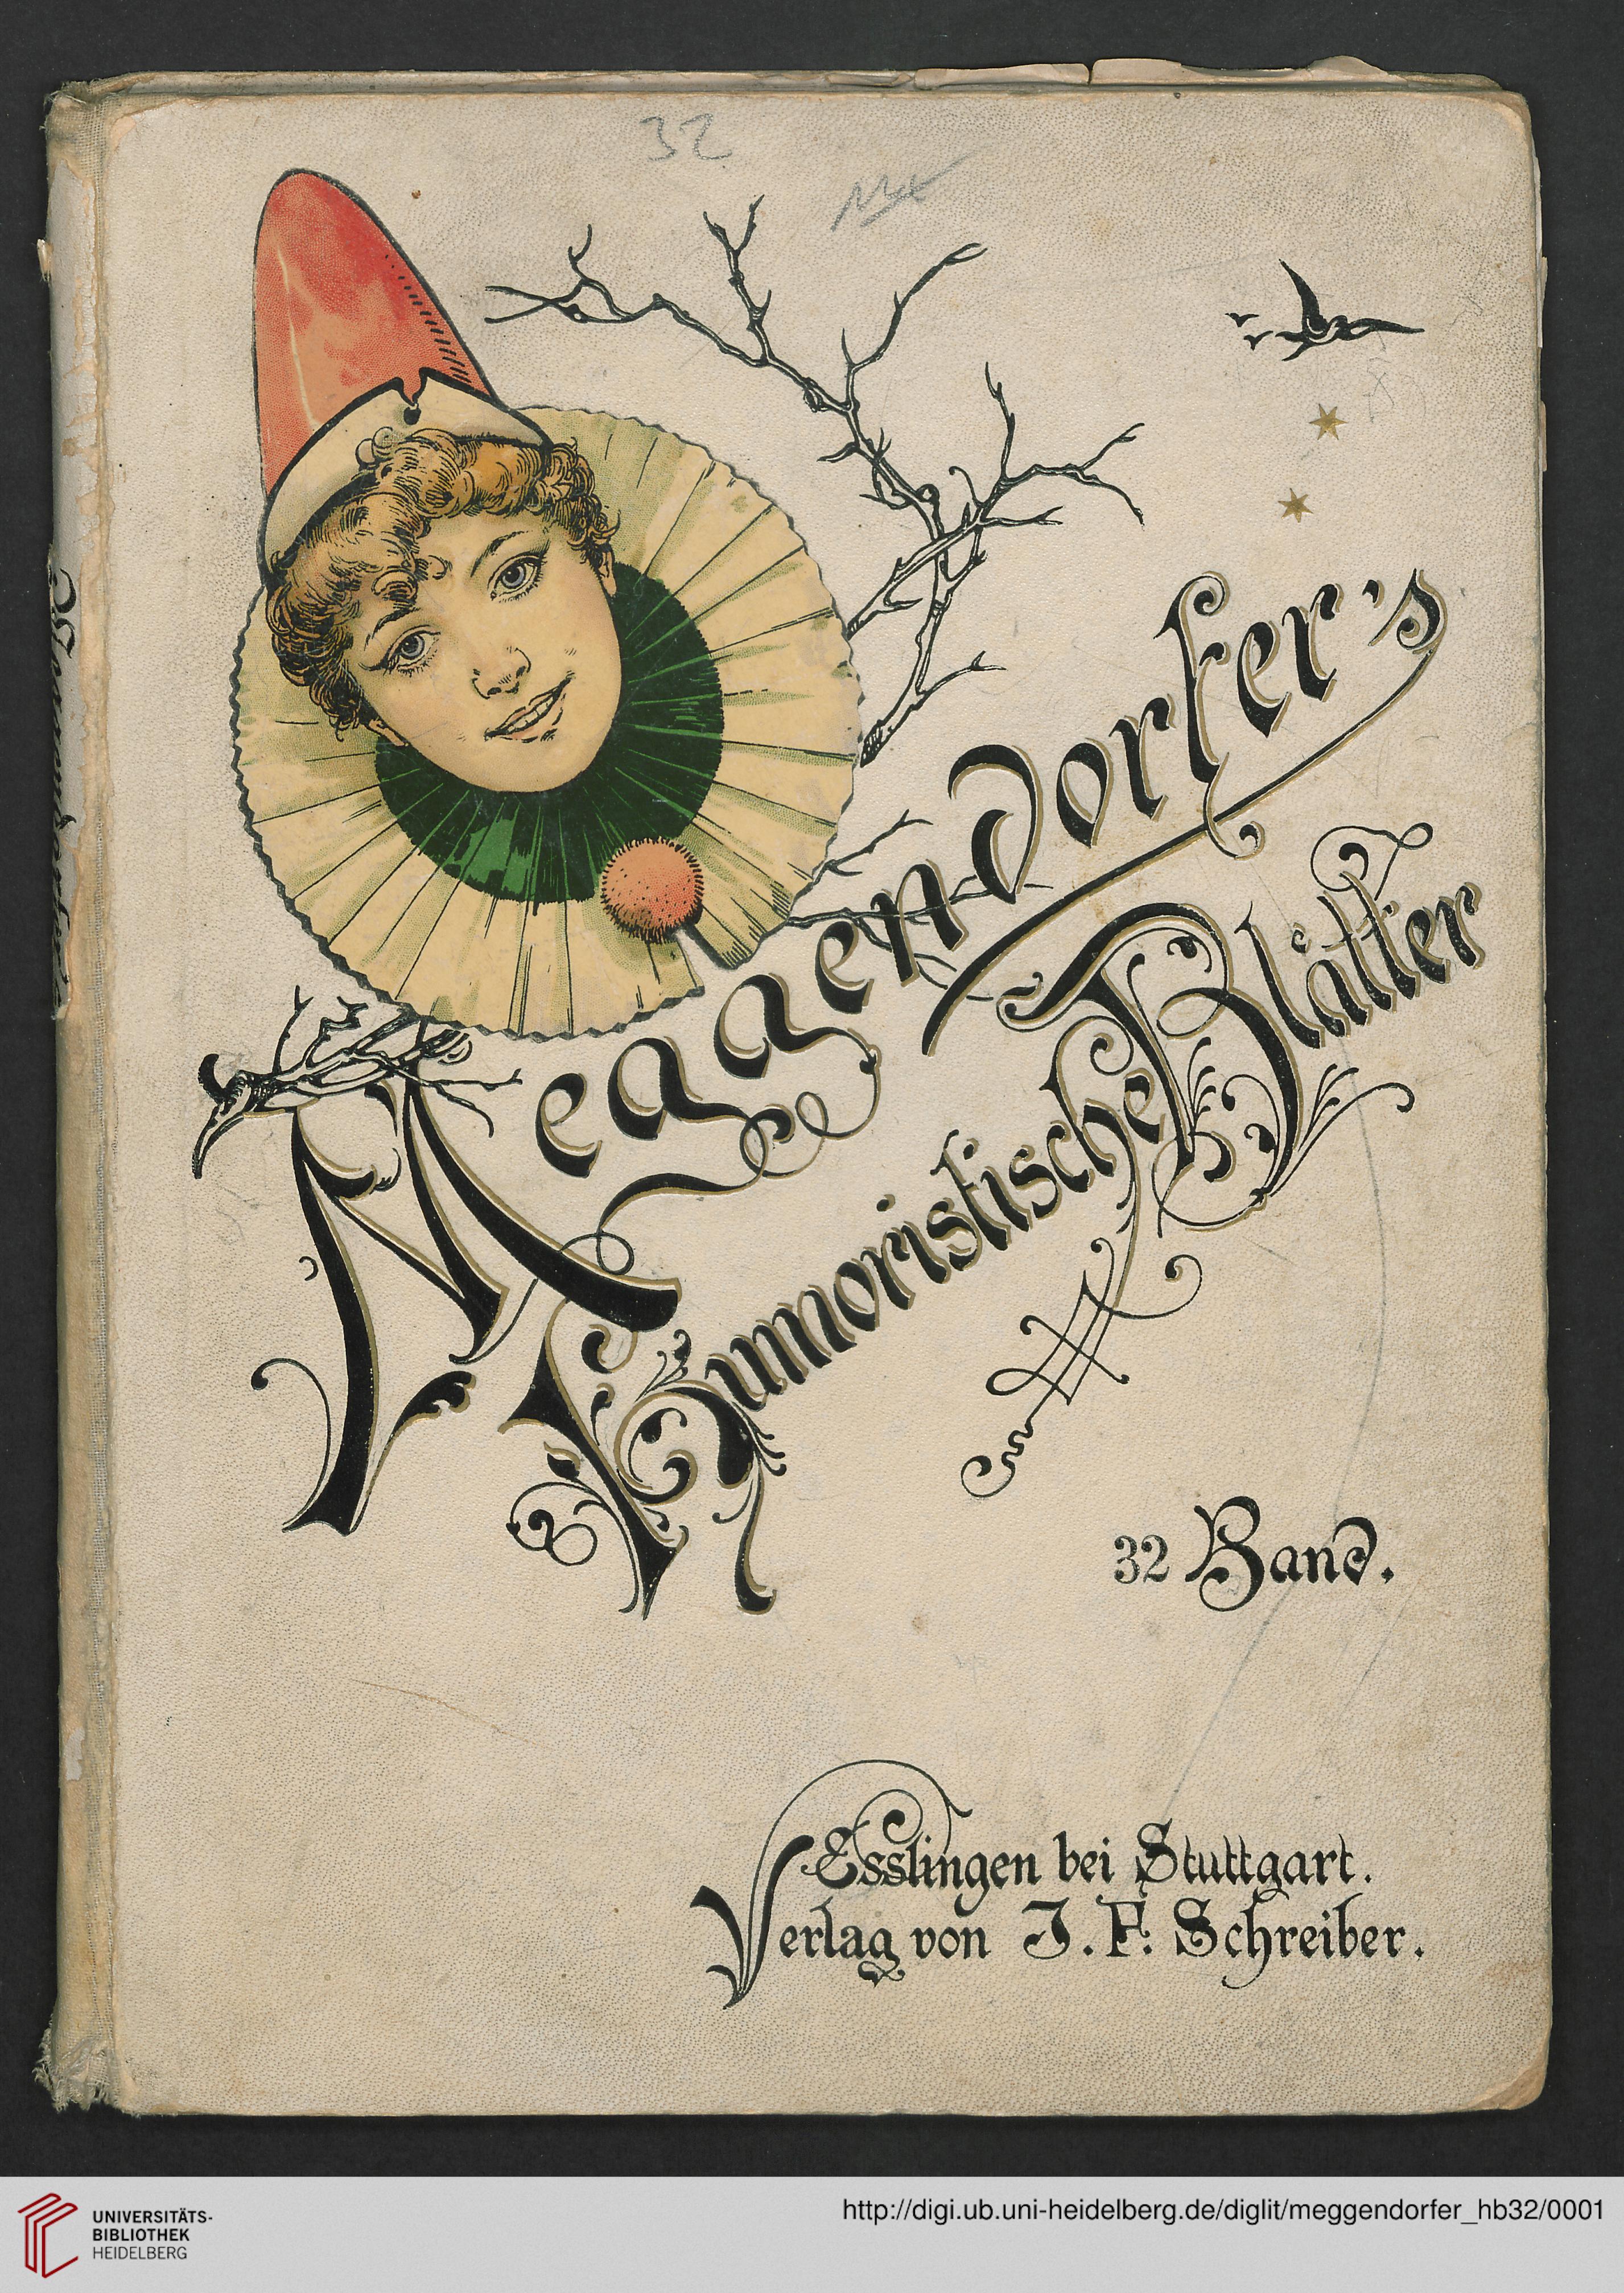 32
Meggendorfer's
Humoristische Blätter
32 Band.
Esslingen bei Stuttgart.
Verlag von J. F. Schreiber.
UNIVERSITÄTS-
BIBLIOTHEK
HEIDELBERG
http://digi.ub.uni-heidelberg.de/diglit/meggendorfer_hb32/0001